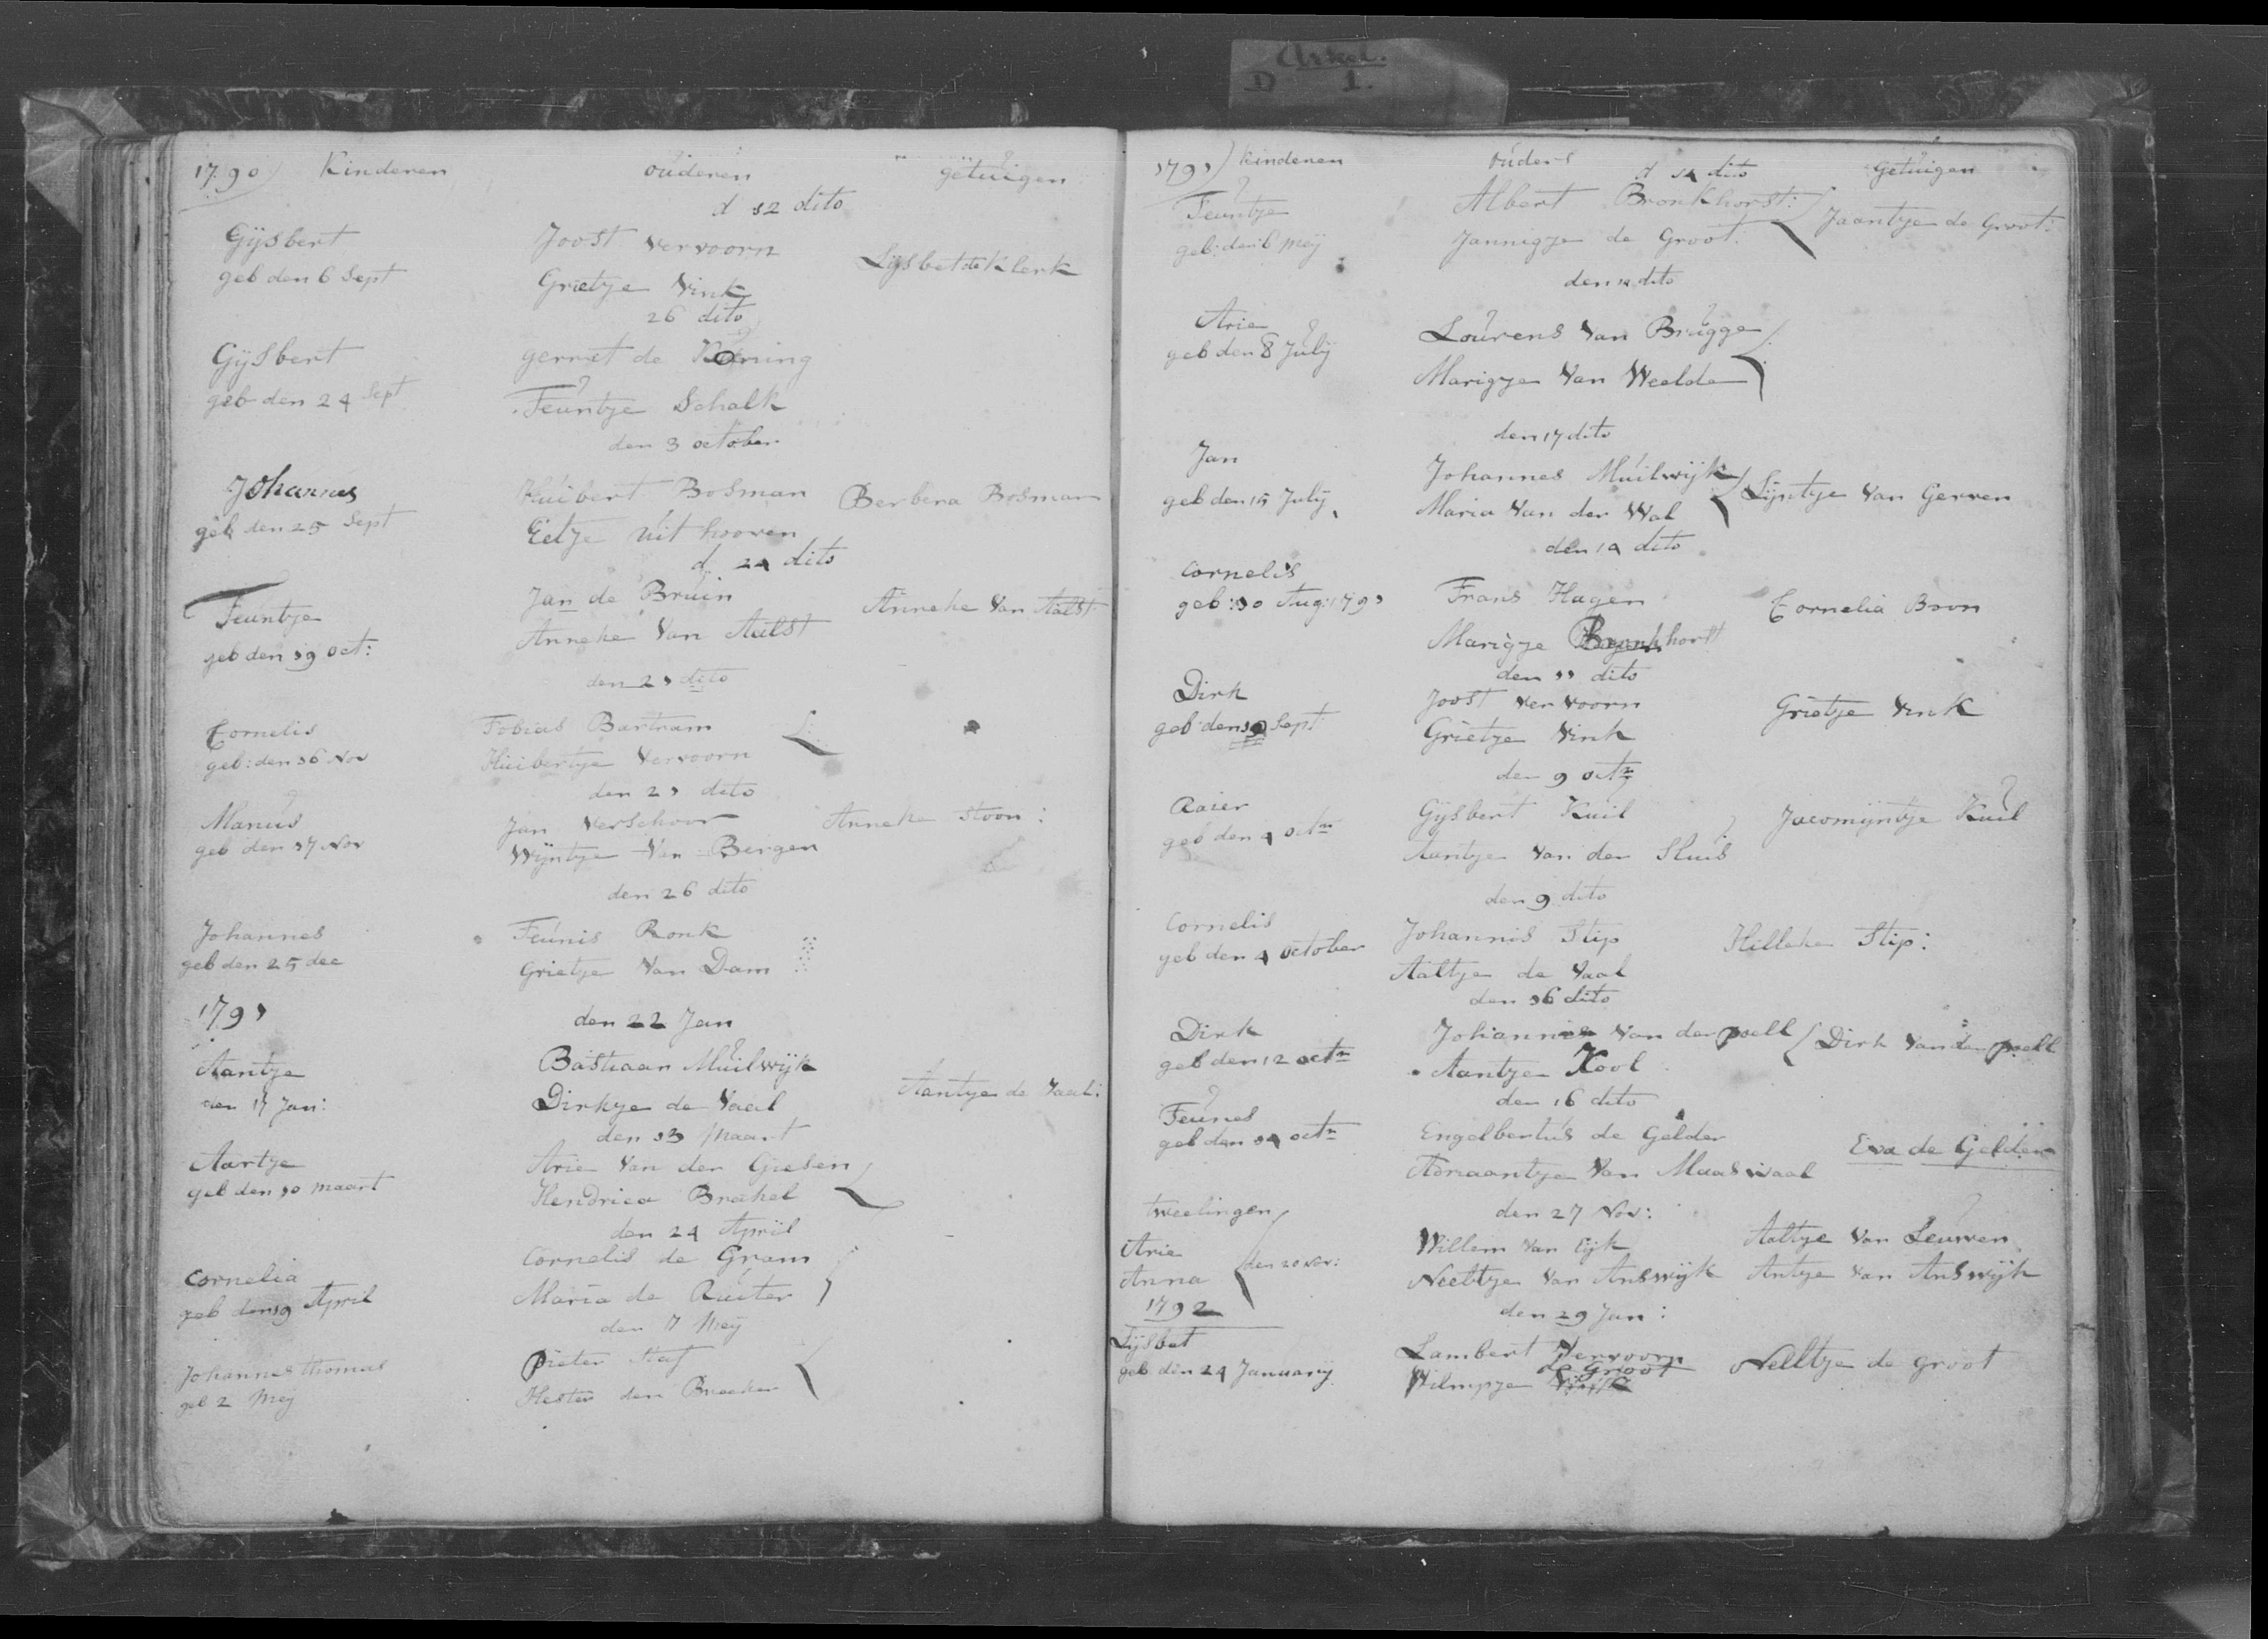 Arkel.
D 1.
1790) Kinderen ouderen getuigen
d 12 dito
Gijsbert Joost Vervoorn
geb den 6 Sept Grietje Vink Lijsbet de Klerk
26 dito
Gijsbert gerrit de Koning
geb den 24 Sept Teuntje Schalk
den 3 october
Johannes Huibert Bosman Berbera Bosman
geb den 25 Sept Eetje uit hooven
d 24 dito
Teuntje Jan de Bruin Anneke Van Aalst
geb den 19 oct: Anneke Van Aalst
den 21 dito
Cornelis Tobias Bartram
geb: den 16 Nov Huibertje Vervoorn
den 21 dito
Manus Jan Verschoor Anneke Stoon:
geb den 17 Nov Wijntje Van Bergen
den 26 dito
Johannes Teunis Ronk
geb den 25 dec Grietje Van Dam
1791 den 22 Jan
Aantje Bastiaan Muilwijk
den 17 Jan: Dirkje de Vaal Aantje de Vaal:
den 13 Maart
Aartje Arie Van der Giesen
geb den 10 maart Hendrica Brakel
den 24 April
Cornelia Cornelis de Gram
geb den 19 April Maria de Ruiter
den 7 Meij
Johannes thomas Pieter Staf
geb 2 Meij Hester den Breecker
1791) Kinderen ouders Getuigen
d 14 dito
Teuntje Albert Bronkhorst: Jaantje de Groot:
geb: den 6 Meij Jannigje de Groot.
den 10 dito
Arie Lourens Van Brugge
geb den 8 Julij Marigje Van Weelde
den 17 dito
Jan Johannes Muilwijk Lijntje Van Gerven
geb den 15 Julij Maria Van der Wal
den 14 dito
Cornelis Frans Hagen Cornelia Boon
geb: 10 Aug: 1791 Marigje Bronkhorst
den 11 dito
Dirk Joost Vervoorn Grietje Vink
geb: den 10 Sept Grietje Vink
den 9 octr
Raier Gijsbert Kuil Jacomijntje Kuil
geb den 4 octr Aantje Van der Sluis
den 9 dito
Cornelis Johannis Stip Hilleke Stip:
geb den 4 October Aaltje de Vaal
den 16 dito
Dirk Johannes Van der poell Dirk Van der poell
geb den 12 octr Aantje Kool
den 16 dito
Teunes Engelbertus de Gelder Eva de Gelder
geb den 14 octr Adriaantje Van Maaswaal
tweelingen den 27 Nov:
Arie Willem Van Eijk Aaltje Van Leuwen
Anna den 20 Nov: Neeltje Van Answijk Antje Van Answijk
1792 den 29 Jan:
Lijsbet Lambert Vervoorn
geb den 24 Januarij Wilmpje Vink de Groot Nelltje de groot